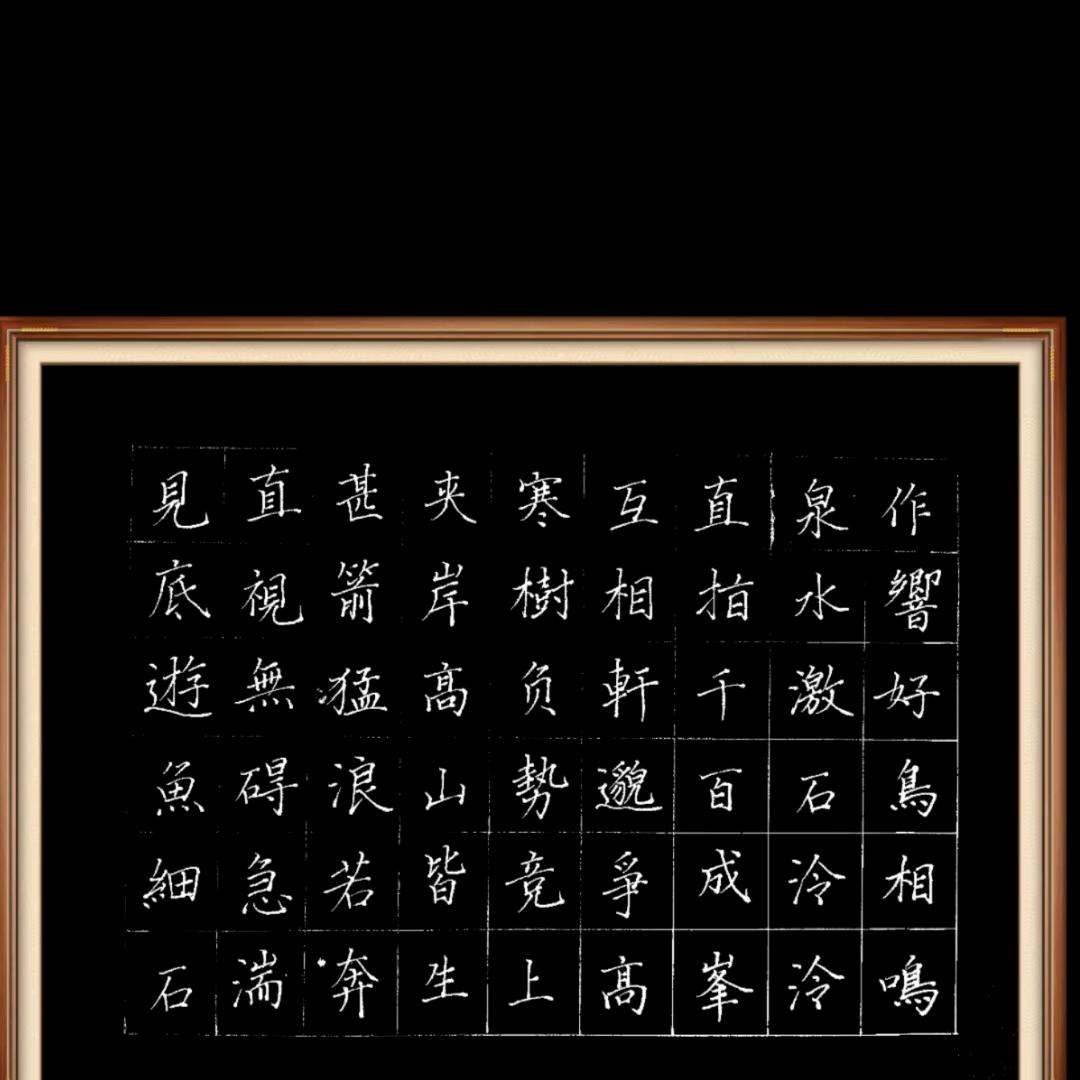 見底遊魚細石
直視無碍急湍
甚箭猛浪若奔
夾岸髙山皆生
寒樹负勢竞上
互相軒邈爭髙
直指千百成峯
泉水激石泠泠
作響好鳥相鳴